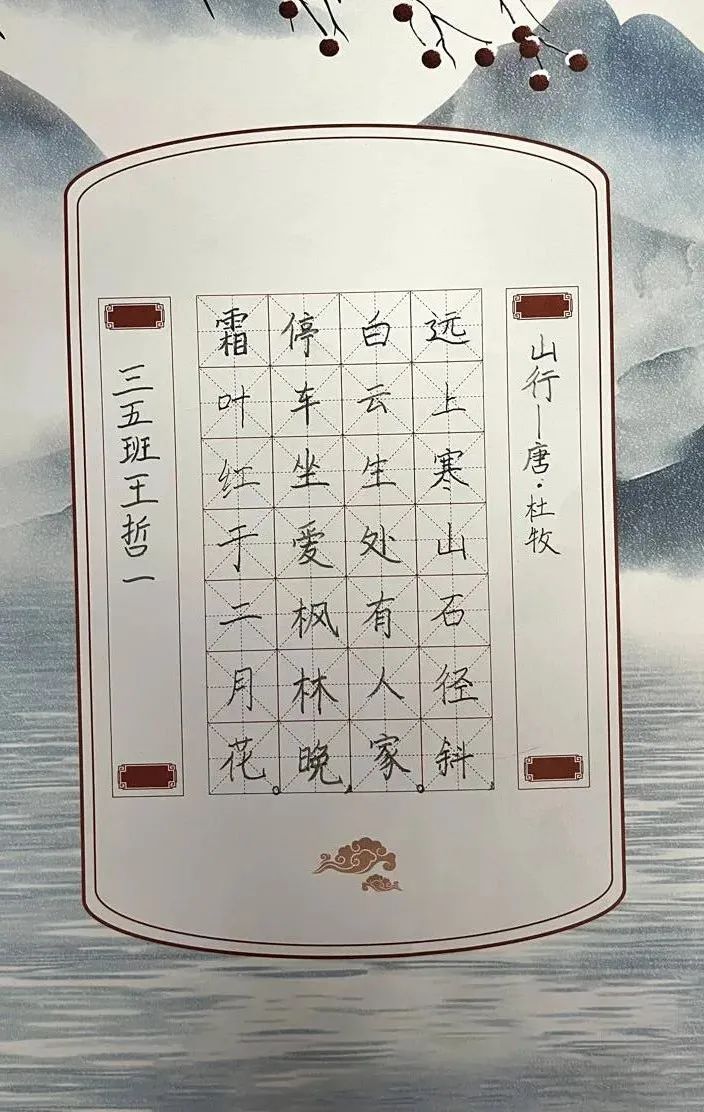 山行—唐·杜牧
远上寒山石径斜，
白云生处有人家。
停车坐爱枫林晚，
霜叶红于二月花。
三五班王哲一